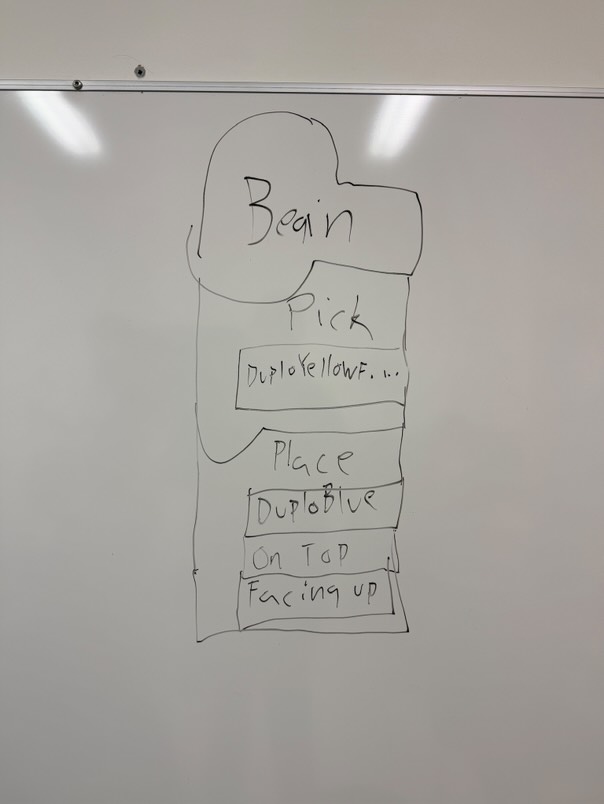 Begin
Pick
DuploYellowF....
Place
DuploBlue
On Top
Facing up